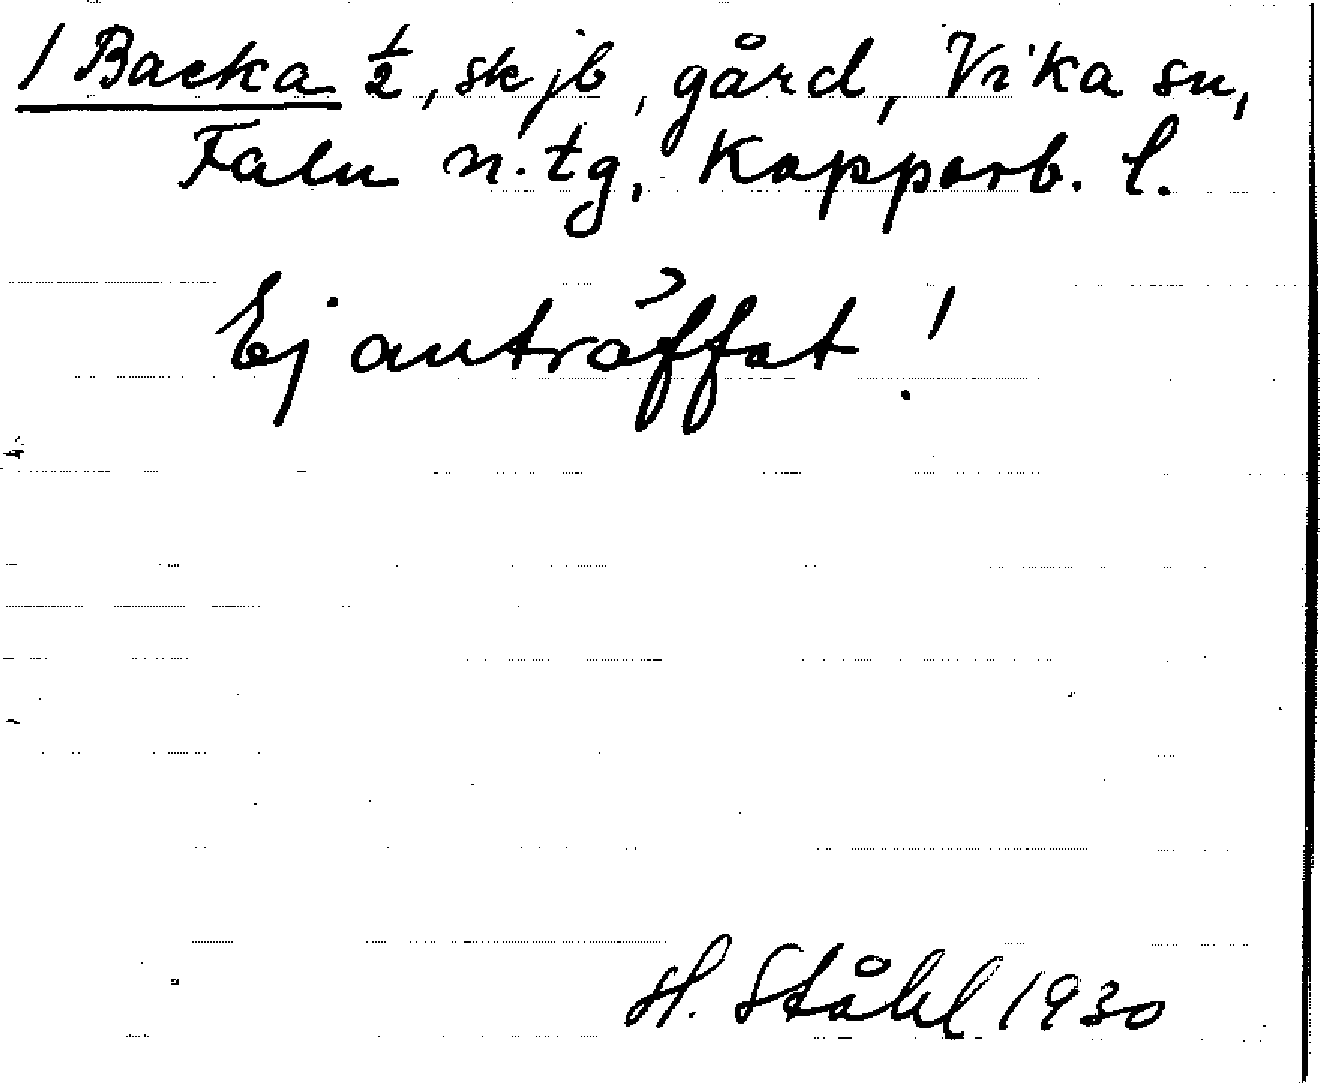 / Backa ½, skjb, gård, Vika sn,
Falu n. tg, Kopparb. l.
Ej anträffat!
H. Ståhl 1930